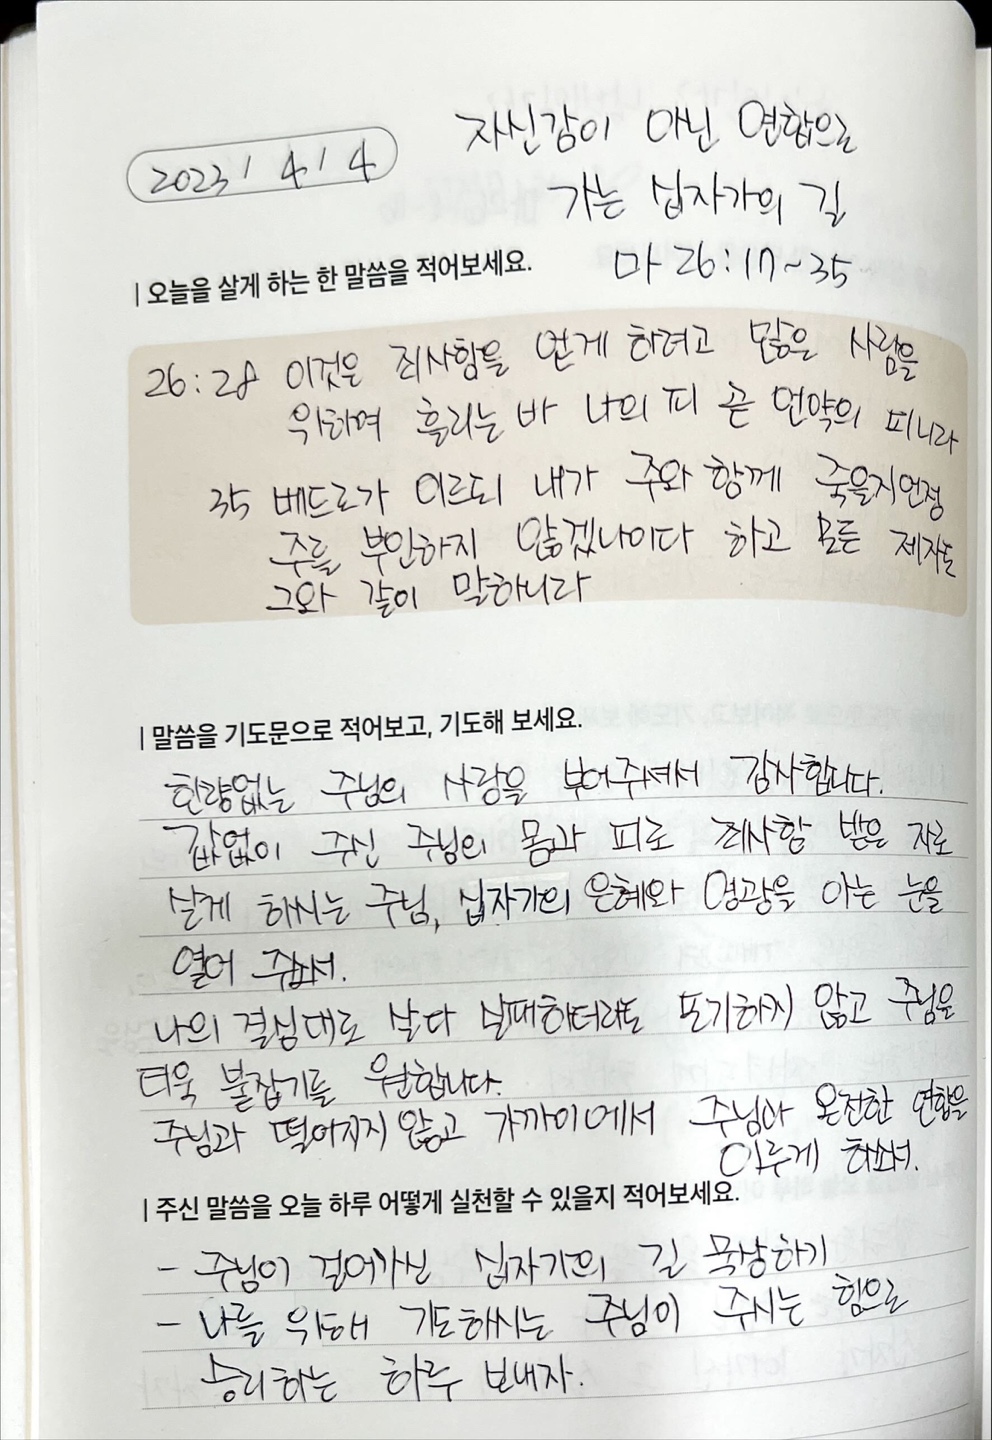 2023 / 4 / 4
자신감이 아닌 연합으로
가는 십자가의 길
마 26:17~35
| 오늘을 살게 하는 한 말씀을 적어보세요.
26:28 이것은 죄사함을 얻게 하려고 많은 사람을
위하여 흘리는 바 나의 피 곧 언약의 피니라
35 베드로가 이르되 내가 주와 함께 죽을지언정
주를 부인하지 않겠나이다 하고 모든 제자도
그와 같이 말하니라
| 말씀을 기도문으로 적어보고, 기도해 보세요.
한량없는 주님의 사랑을 부어주셔서 감사합니다.
값없이 주신 주님의 몸과 피로 죄사함 받은 자로
살게 하시는 주님, 십자가의 은혜와 영광을 아는 눈을
열어 주소서.
나의 결심대로 살다 실패하더라도 포기하지 않고 주님을
더욱 붙잡기를 원합니다.
주님과 떨어지지 않고 가까이에서 주님과 온전한 연합을
이루게 하소서.
| 주신 말씀을 오늘 하루 어떻게 실천할 수 있을지 적어보세요.
- 주님이 걸어가신 십자가의 길 묵상하기
- 나를 위해 기도하시는 주님이 주시는 힘으로
승리하는 하루 보내자.